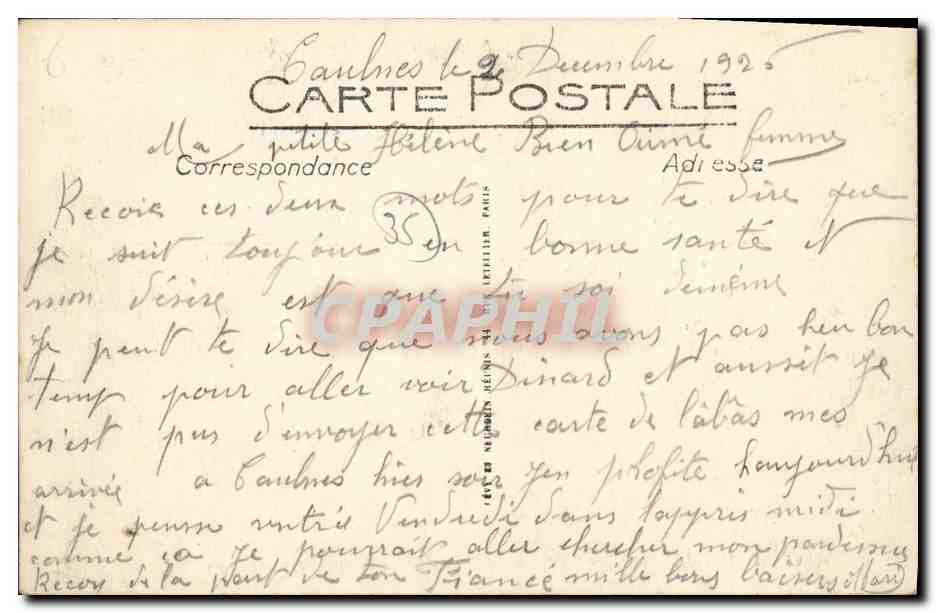 Caulnes le 2 Decembre 1926
CARTE POSTALE
Ma petite Hélène Bien Aimé femme
Correspondance
Adresse
Recois ces deux mots pour te dire que
35
je suit toujour en bonne santé et
mon désire est que tu soi demême
CPAPHIL
je peut te dire que nous avons pas heu bon
temp pour aller voir Dinard et aussit je
n'est pus d'envoyer cette carte de labâs mes
arrivée a Caulnes hies soir j'en profite haujourd'hui
et je pensse rentré Vendredi dans lappris midi
comme ca je pourrait aller chercher mon pardessus
Recois de la part de ton Fiancé mille bons baisers
LEVY ET NEURDEIN RÉUNIS 44 RUE LETELLIER, PARIS